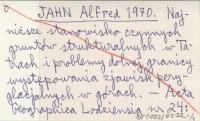 JAHN Alfred 1970. Naj-
niższe stanowisko czynnych
gruntów strukturalnych w Ta-
trach i problemy dolnej granicy
występowania zjawisk pery-
glacjalnych w górach. - Acta
Geographica Lodziensia nr 24: